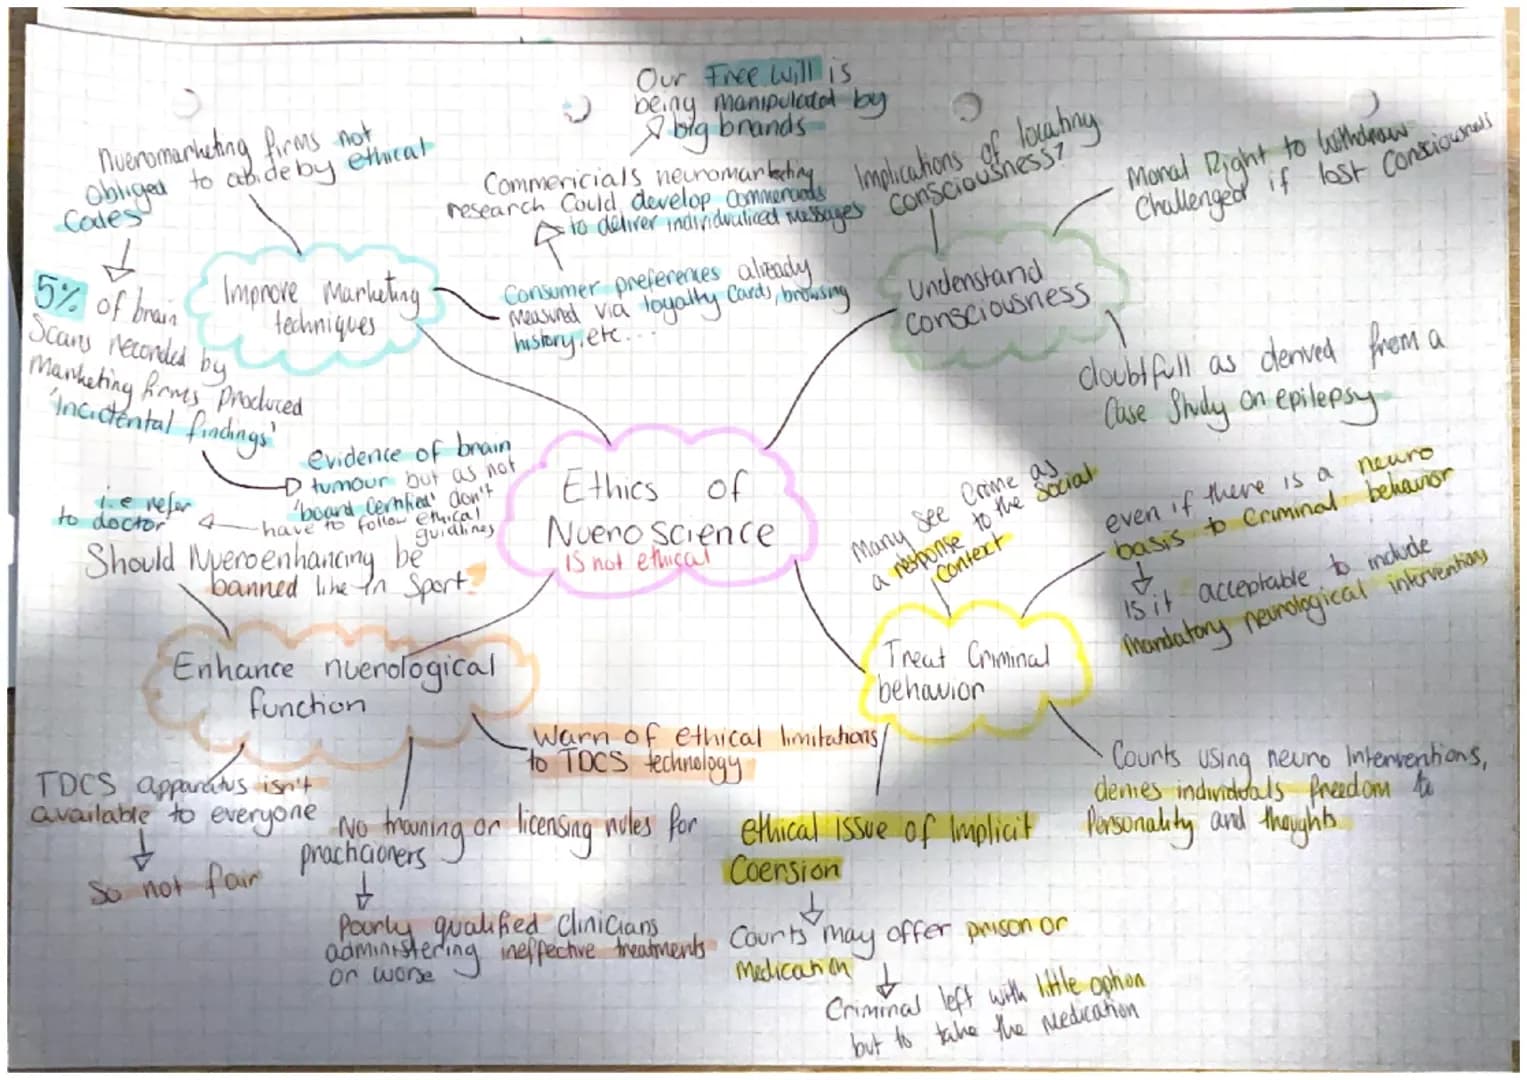 Our Free will is
being manipulated by
big brands
Nueromarketing firms not
obliged to abide by ethical
Codes
5% of brain
Scans recorded by
Marketing firms produced
'incidental findings'
evidence of brain
tumour but as not
'board certified' don't
have to follow ethical
guidlines
i.e refer
to doctor
Improve Marketing
techniques
Commericials neuromarketing
research Could develop Commercials
to deliver individualised messages
Consumer preferences already
measured via loyalty Cards, browsing
history, etc...
Implications of locating
consciousness?
Moral Right to Withdraw
Challenged if lost Consciousness
Understand
consciousness
doubtfull as derived from a
Case Study on epilepsy
Ethics of
Nueroscience
is not ethical
Should Nueroenhancing be
banned like in Sport?
Enhance nuerological
function
TDCS apparatus isn't
available to everyone
So not fair
No training or licensing rules for
practicioners
Poorly qualified Clinicians
administering ineffective treatments
or worse
Warn of ethical limitations
to TDCS technology
Many see Crime as
a response to the Social
context
even if there is a neuro
basis to Criminal behavior
Is it acceptable to include
Mandatory neurological interventions
Treat Criminal
behavior
ethical issue of Implicit
Coersion
Courts may offer prison or
Medication
Criminal left with little option
but to take the Medication
Courts using neuro Interventions,
denies individuals freedom to
Personality and thoughts